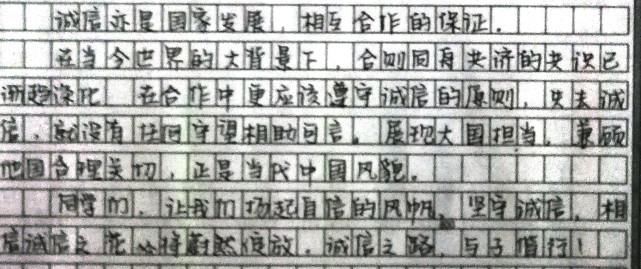 诚信亦是国家发展，相互合作的保证。
在当今世界的大背景下，合则同舟共济的共识已
渐趋深化，在合作中更应该遵守诚信的原则，失去诚
信，就没有任何守望相助可言。展现大国担当，兼顾
他国合理关切，正是当代中国风貌。
同学们，让我们扬起自信的风帆，坚守诚信，相
信诚信之花必将蔚然绽放，诚信之路，与子偕行！